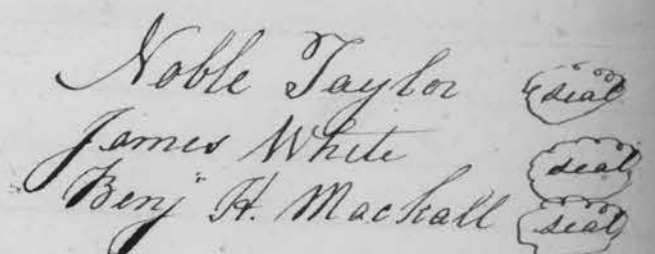 Noble Taylor seal
James White seal
Benj" H. Mackall seal